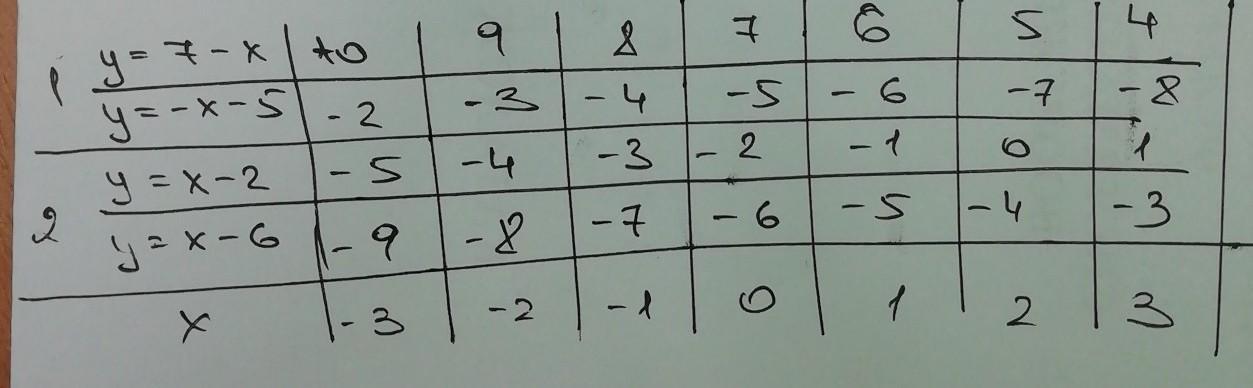 1 y = 7 - x 10 9 8 7 6 5 4
y = -x - 5 -2 -3 -4 -5 -6 -7 -8
2 y = x - 2 -5 -4 -3 -2 -1 0 1
y = x - 6 -9 -8 -7 -6 -5 -4 -3
x -3 -2 -1 0 1 2 3